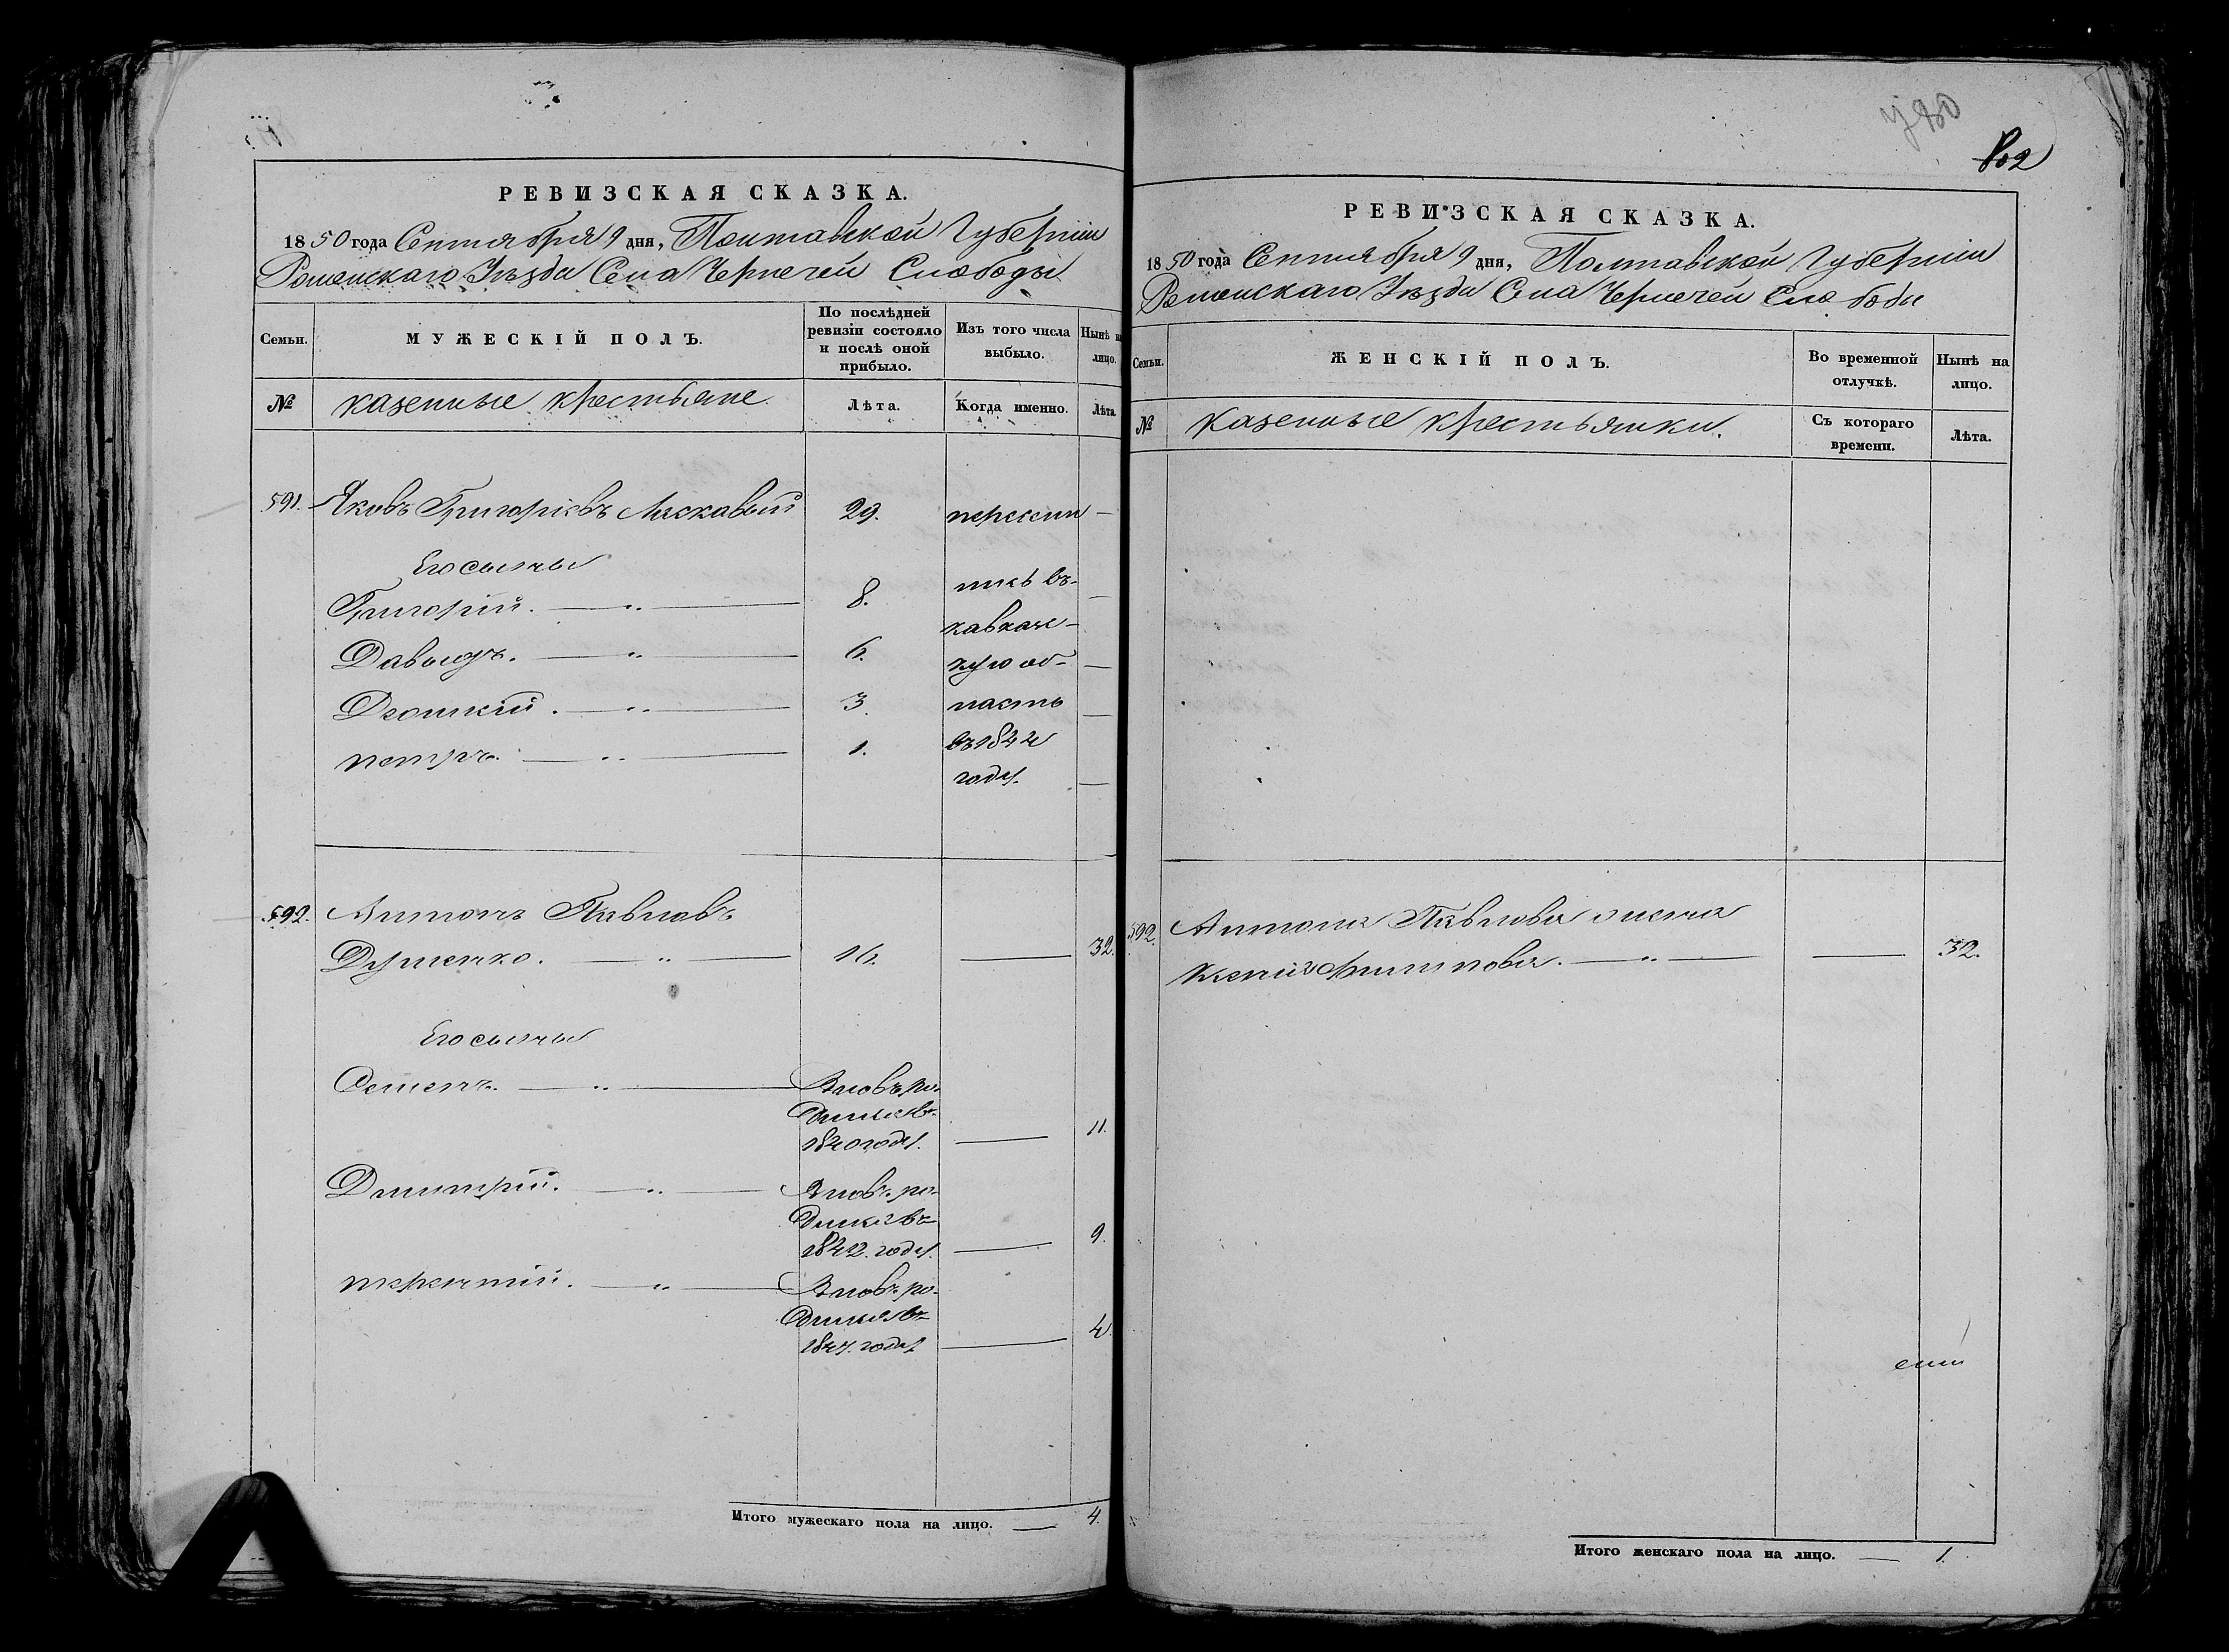 РЕВИЗСКАЯ СКАЗКА.
1850 года Сентября 9 дня, Полтавской Губерніи
Роменскаго Уѣзда Села Чернечей Слободы
Семьи.
МУЖЕСКІЙ ПОЛЪ.
По послѣдней ревизіи состояло и послѣ оной прибыло.
Изъ того числа выбыло.
Нынѣ на лицо.
№
казенные крестьяне.
Лѣта.
Когда именно.
Лѣта.
591. Яковъ Григоріевъ 29. переселился въ кавказскую область въ 1844 году.
Его сыны
Григорій. — „ — 8. —
Давыдъ. — „ — 6. —
3. —
петръ. — „ — 1. —
592. Антонъ Павловъ
16. — 32.
Его сыны
Семенъ. — „ — Вновь родился въ 1840 году. — 11.
Димитрій. — „ — Вновь родился въ 1842. году. — 9.
терентій. — „ — Вновь родился въ 1847. году — 4.
Итого мужескаго пола на лицо. — 4.
802
РЕВИЗСКАЯ СКАЗКА.
1850 года Сентября 9 дня, Полтавской Губерніи
Роменскаго Уѣзда Села Чернечей Слободы
Семьи.
ЖЕНСКІЙ ПОЛЪ.
Во временной отлучкѣ.
Нынѣ на лицо.
№
казенные крестьянки.
Съ котораго времени.
Лѣта.
592. Антона Павлова жена
Ксенія Филипова. — „ — — 32.
Итого женскаго пола на лицо. — 1.